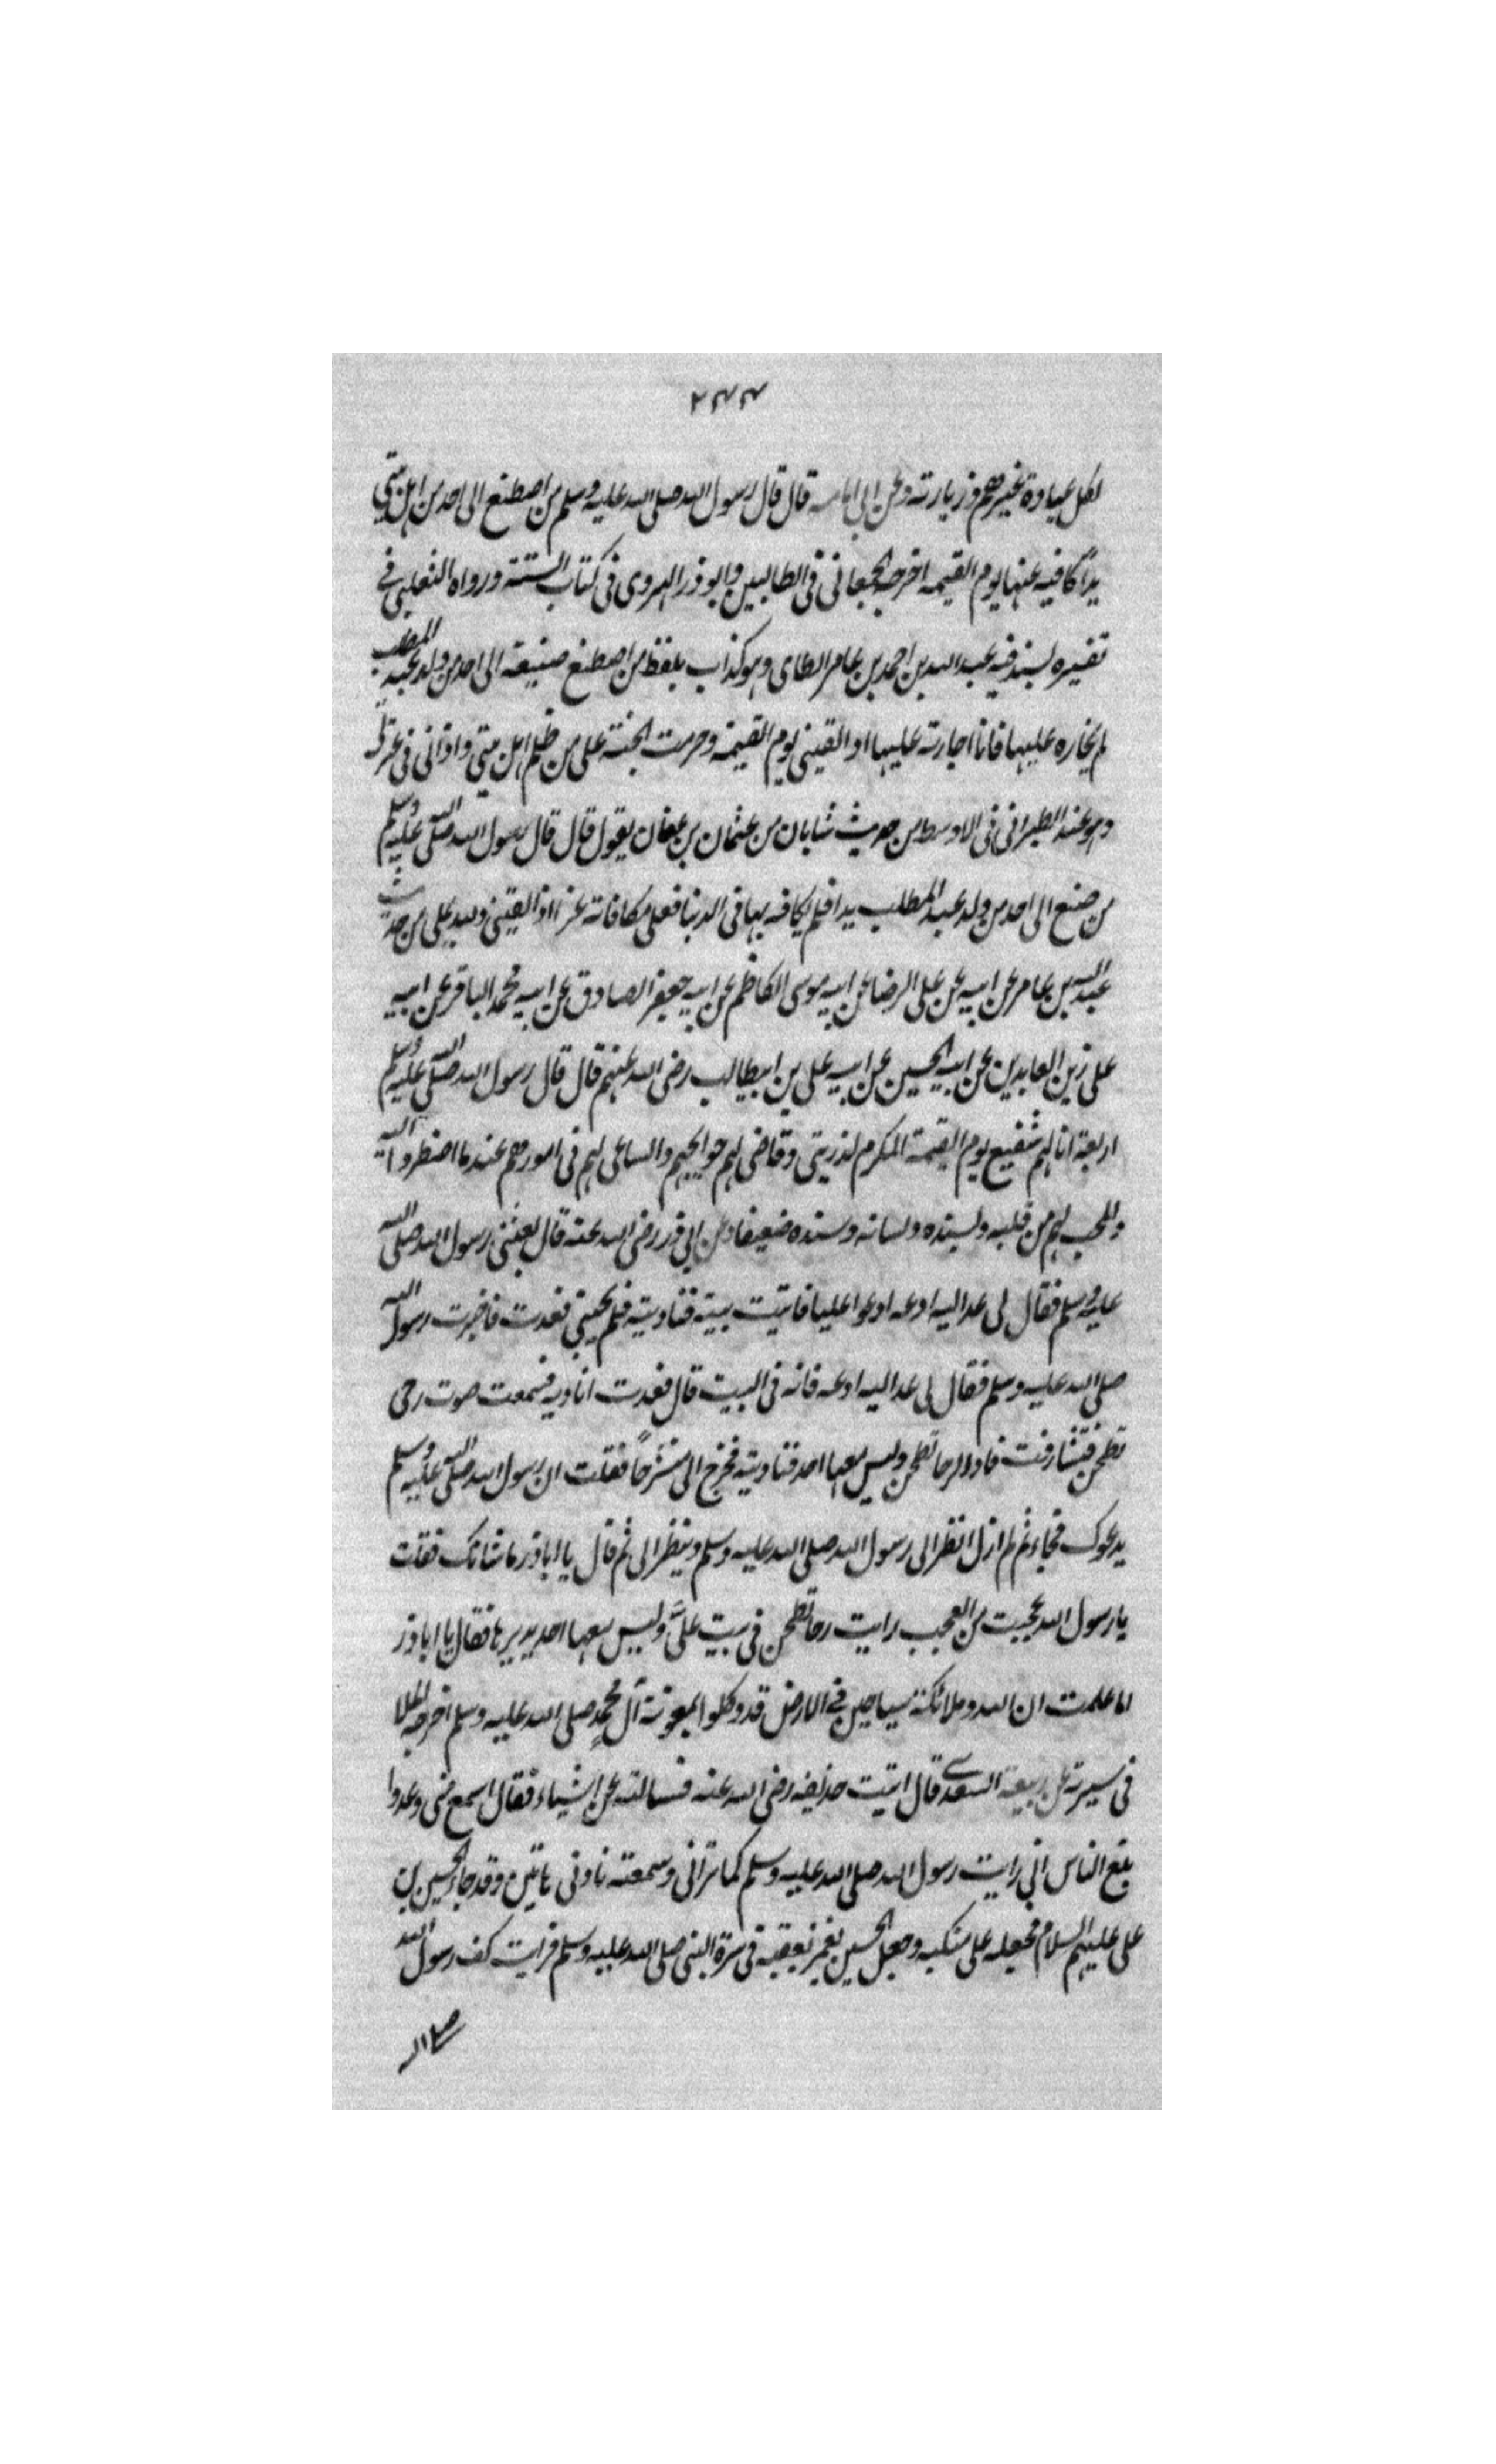 ٢٤٤
لكل عيادة غيرهم وزيارته وعن ابى امامه قال قال رسول الله صلى الله عليه وسلم من اصطنع الى احد من اهل بيتي
يدًا كافيه عنها يوم القيمه اخرجه الجعابى فى الطالبين وابو ذر الهروى فى كتاب السنة ورواه الثعلبى فى
تفسيره بسند فيه عبد الله بن احمد بن عامر الطاى وهو كذاب بلفظ من اصطنع صنيعة الى احد من ولد عبد المطلب
لم يجازه عليها فانا اجازته عليها اذ القينى يوم القيمة وحرمت الجنة على من ظلم اهل بيتى واذانى فى عترتى
وهو عند الطبرانى فى الاوسط من حديث شابان من عثمان بن عفان يقول قال قال رسول الله صلى الله عليه وسلم
من صنع الى احد من ولد عبد المطلب يدا فلم يكافه بها فى الدنيا فعلى مكافاته غدا اذ القينى ولسد على من حديث
عبد الله بن عامر عن ابيه عن على الرضا عن ابيه موسى الكاظم عن ابيه جعفر الصادق عن ابيه محمد الباقر عن ابيه
على زين العابدين عن ابيه الحسين عن ابيه على بن ابيطالب رضى الله عنهم قال قال رسول الله صلى الله عليه وسلم
اربعة انا لهم شفيع يوم القيمة المكرم لذريتى وقاضى لهم حوايجهم والساعى لهم فى امورهم عند ما اضطروا اليه
والمحب لهم من قلبه ولسنده ولسانه وسنده ضعيفا وعن ابى ذر رضى الله عنه قال بعثنى رسول الله صلى الله
عليه وسلم فقال لى عد اليه ادعه ادعوا عليا فاتيت بيته فناديته فلم يجبنى فعدت فاخبرت رسول الله
صلى الله عليه وسلم فقال لى عد اليه ادعه فانه فى البيت قال فعدت اناديه فسمعت صوت رحى
تطحن فتشارفت فاذا الرحا تطحن وليس معها احد فناديته فخرج الى منشرحًا فقلت ان رسول الله صلى الله عليه وسلم
يدعوك فجاء ثم لم ازل انظر الى رسول الله صلى الله عليه وسلم وينظر الى ثم قال يا اباذر ما شانك فقلت
يا رسول الله عجبت من العجب رايت رحا تطحن فى بيت علىّ وليس معها احد يديرها فقال يا اباذر
اما علمت ان الله وملائكة سياحين فى الارض قد وكلوا بمعونة آل محمدٍ صلى الله عليه وسلم اخرجه الملا
فى سيرته عن ربيعة السعدى قال اتيت حذيفه رضى الله عنه فسالته عن اشياء فقال اسمع منى وعه وا
بلغ الناس انى رايت رسول الله صلى الله عليه وسلم كما ترانى وسمعته ناذنى هاتين وقد جاء الحسين بن
على عليهم السلام فجعله على منكبه وجعل الحسين يغمز بعقبه فى سرة النبى صلى الله عليه وسلم فرايت كف رسول الله
صلى الله